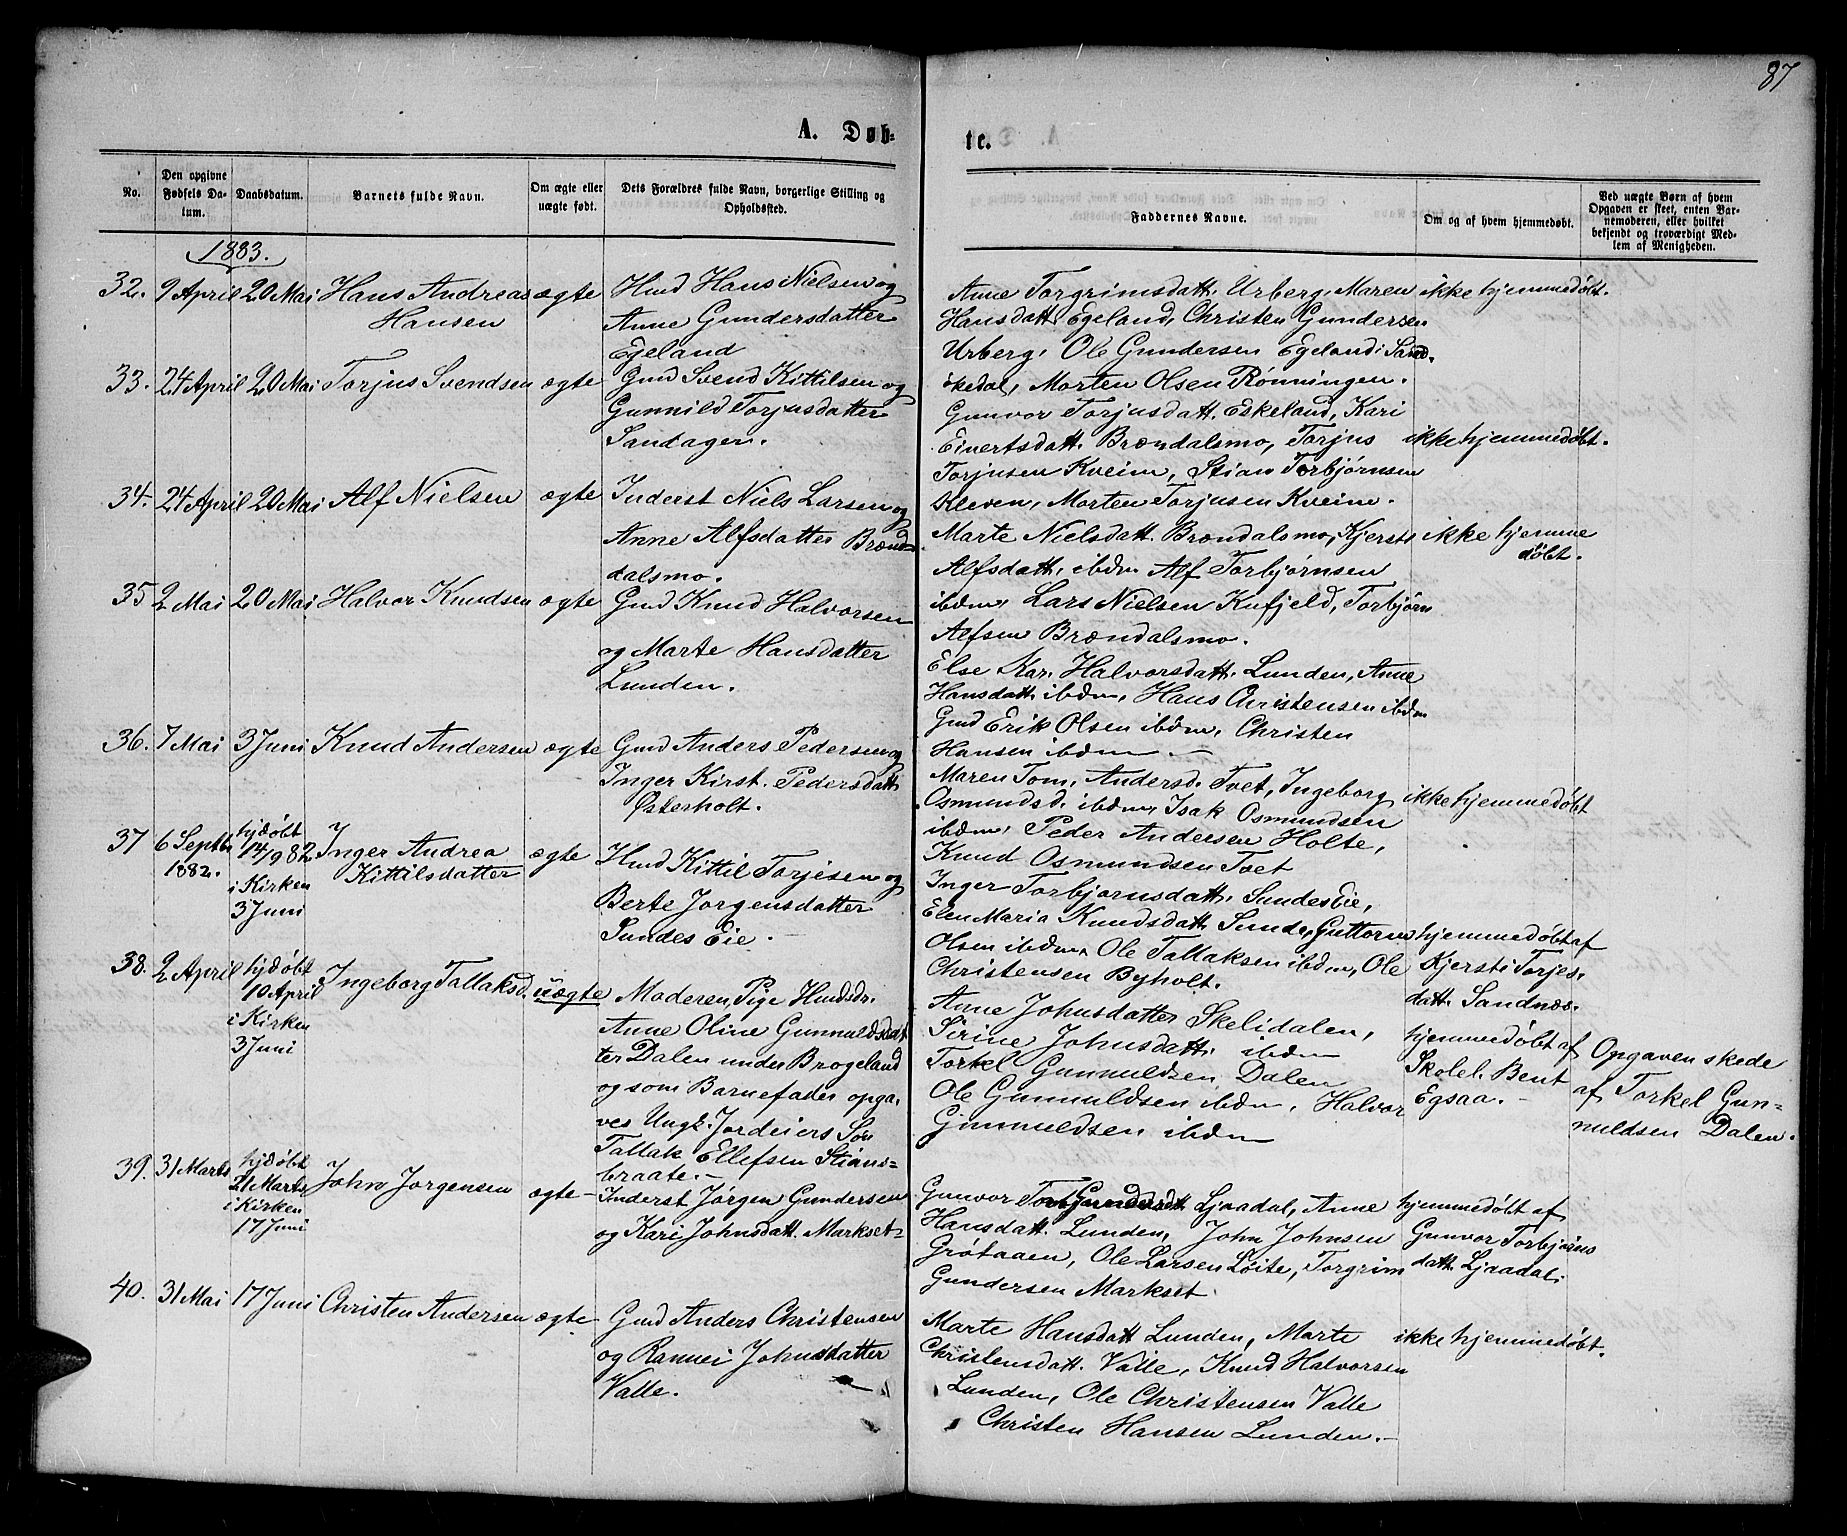 87
A. Døb-
te.
No.
Den opgivne Fødsels Da-
tum.
Daabsdatum.
Barnets fulde Navn.
Om ægte eller
uægte født.
Dets Forældres fulde Navn, borgerlige Stilling og
Opholdssted.
Faddernes Navne.
Om og af hvem hjemmedøbt.
Ved uægte Børn af hvem
Opgaven er skeet, enten Bar-
nemoderen, eller hvilket
bekjendt og troværdigt Med-
lem af Menigheden.
1883.
32. 9 April 20 Mai Hans Andreas ægte Hmd Hans Nielsen og
Hansen Anne Gundersdatter
Egeland
Anne Torgrimsdatt. Urberg, Maren ikke hjemmedøbt.
Hansdatt. Egeland, Christen Gundersen
Urberg, Ole Gundersen Egeland i Sand-
økedal, Morten Olsen Rønningen.
33. 24 April 20 Mai Torjus Svendsen ægte Gmd Svend Kittilsen og
Gunnild Torjusdatter
Sandagen.
Gunvor Torjusdatt. Eskeland, Kari
Eivertsdatt. Brændalsmo, Torjus ikke hjemmedøbt.
Torjusen Kveim, Stian Torbjørnsen
Kleven, Morten Torjusen Kveim.
34. 24 April 20 Mai Alf Nielsen ægte Inderst Niels Larsen og
Anne Alfsdatter Brænd-
dalsmo.
Marte Nielsdatt. Brændalsmo, Kjersti ikke hjemme
døbt.
Alfsdatt. ibdm Alf Torbjørnsen
ibdm, Lars Nielsen Kufjeld, Torbjørn
Alfsen Brændalsmo.
35 2 Mai 20 Mai Halvor Knudsen ægte Gmd Knud Halvorsen
og Marte Hansdatter
Lunden.
Else Kar. Halvorsdatt. Lunden, Anne
Hansdatt ibdm, Hans Christensen ibdm
Gmd Erik Olsen ibdm, Christen
Hansen ibdm
36. 7 Mai 3 Juni Knud Andersen ægte Gmd Anders Pedersen og
Inger Kirst. Pedersdatt
Østerholt.
Maren Tom. Andersd. Tvet, Ingeborg ikke hjemmedøbt
Osmundsd. ibdm, Isak Osmundsen
ibdm, Peder Andersen Holte,
Knud Osmundsen Tvet
37 6 Septbr 1882. hjdøbt 14/9 82 i Kirken 3 Juni Inger Andrea Kittilsdatter ægte Hmd Kittil Torjesen og
Berte Jørgensdatter
Sundes Eie.
Inger Torbjørnsdatt. Sundes Eie,
Elen Maria Knudsdatt Sunde, Guttorm hjemmedøbt af
Olsen ibdm, Ole Tallaksen ibdm, Ole Kjersti Torjes-
Christensen Byholt. datt. Sandnæs.
38. 2 April hjdøbt 10 April i Kirken 3 Juni Ingeborg Tallaksd. uægte Moderen, Pige Hmdsdr.
Anne Oline Gunnuldsdat
ter Dalen under Brogeland
og som Barnefader opga-
ves Ungk. Jordeiers Søn
Tallak Ellefsen Stians-
braate.
Anne Johnsdatter Skelidalen,
Sirine Johnsdatt. ibdm
Torkel Gunnuldsen Dalen
Ole Gunnuldsen ibdm, Halvor
Gunnuldsen ibdm
hjemmedøbt af
Skolel. Bent
Egsaa.
Opgaven skede
af Torkel Gun-
nuldsen Dalen.
39. 31 Marts hjdøbt 31 Marts i Kirken 17 Juni John Jørgensen ægte Inderst Jørgen Gundersen
og Kari Johnsdatt. Markset
Gunvor Gundersdatt Ljaadal, Anne hjemmedøbt af
Hansdatt. Lunden, John Johnsen Gunvor Torbjørns
Grøtaaen, Ole Larsen Løite, Torgrim datt. Ljaadal.
Gundersen Markset.
40. 31 Mai 17 Juni Christen Andersen ægte Gmd Anders Christensen
og Rannei Johnsdatter
Valle.
Marte Hansdatt Lunden, Marte ikke hjemmedøbt.
Christensdatt. Valle, Knud Halvorsen
Lunden, Ole Christensen Valle
Christen Hansen Lunden.